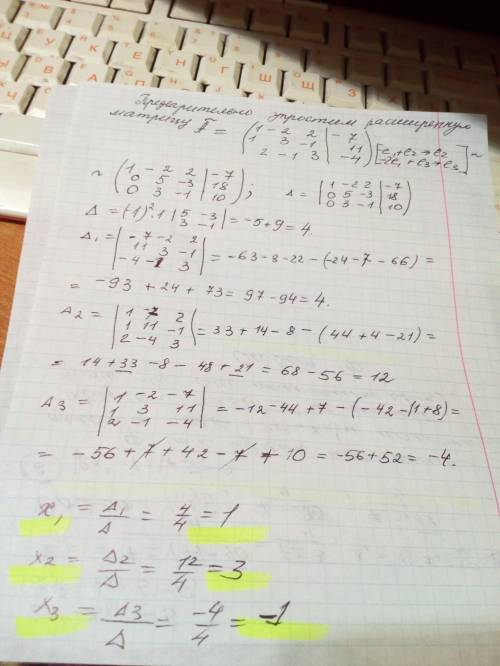 Предварительно упростим расширенную
матрицу Ã = (1 -2 2 | -7
1 3 -1 | 11
2 -1 3 | -4) [-l₁+l₂→l₂
-2l₁+l₃→l₃] ~
~ (1 -2 2 | -7
0 5 -3 | 18
0 3 -1 | 10) ; Δ = |1 -2 2 | -7
0 5 -3 | 18
0 3 -1 | 10|
Δ = (-1)²·1 |5 -3
3 -1| = -5+9 = 4.
Δ₁ = |-7 -2 2
11 3 -1
-4 -1 3| = -63-8-22-(-24-7-66) =
= -93 + 24 + 73 = 97-94 = 4.
Δ₂ = |1 -7 2
1 11 -1
2 -4 3| = 33+14-8-(44+4-21) =
= 14+33-8-48+21 = 68-56 = 12
Δ₃ = |1 -2 -7
1 3 11
2 -1 -4| = -12-44+7-(-42-11+8) =
= -56+7+42-7+10 = -56+52 = -4.
x₁ = Δ₁/Δ = 4/4 = 1
x₂ = Δ₂/Δ = 12/4 = 3
x₃ = Δ3/Δ = -4/4 = -1